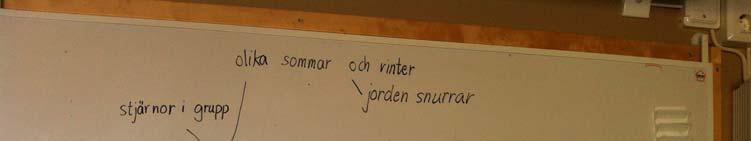 olika sommar och vinter
jorden snurrar
stjärnor i grupp